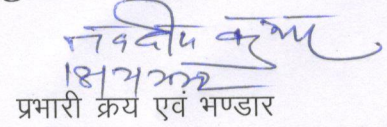 नवदीप कुमार
प्रभारी क्रय एवं भण्डार